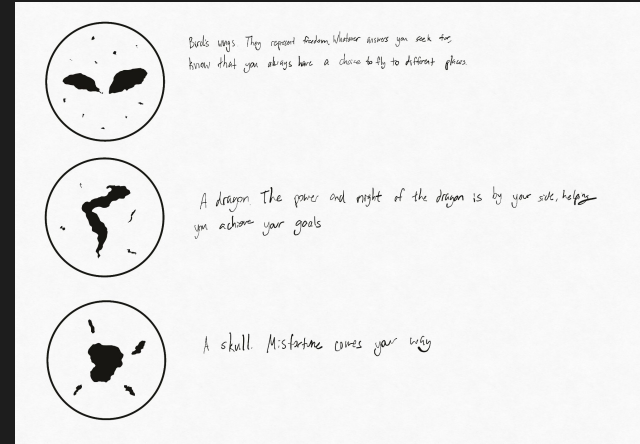 Birds wings. They represent freedom. Whatever answers you seek for,
know that you always have a choice to fly to different places.
A dragon. The power and might of the dragon is by your side, helping
you achieve your goals
A skull. Misfortune comes your way